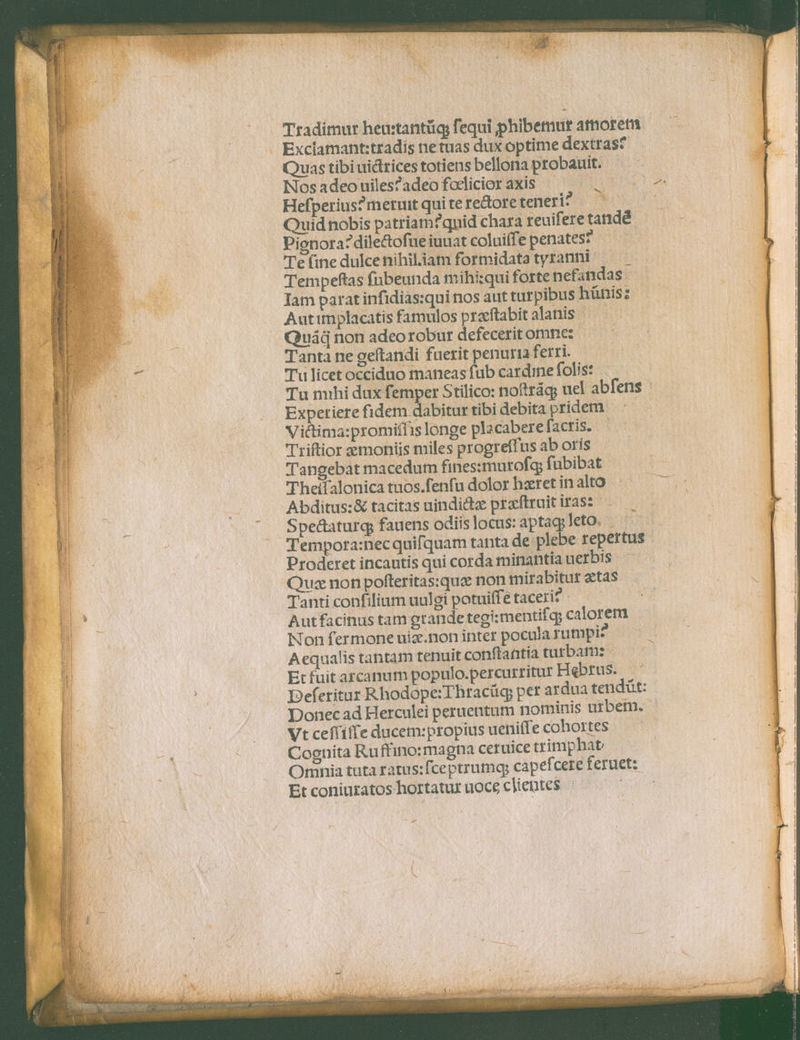 Tradimur heu:tantūq; ſequi ꝓhibemur amorem
Exclamant:tradis ne tuas dux optime dextras?
Quas tibi uictrices totiens bellona probauit.
Nos adeo uiles?adeo fœlicior axis
Heſperius?meruit qui te rectore teneri?
Quid nobis patriam?quid chara reuiſere tandē
Pignora?dilectoſue iuuat coluiſſe penates?
Te ſine dulce nihil.iam formidata tyranni
Tempeſtas ſubeunda mihi:qui forte nefandas
Iam parat inſidias:qui nos aut turpibus hūnis:
Aut implacatis famulos præſtabit alanis
Quāq̄ non adeo robur defecerit omne:
Tanta ne geſtandi fuerit penuria ferri.
Tu licet occiduo maneas ſub cardine ſolis:
Tu mihi dux ſemper Stilico: noſtrāq; uel abſens
Experiere fidem dabitur tibi debita pridem
Victima:promiſſis longe placabere ſacris.
Triſtior æmoniis miles progreſſus ab oris
Tangebat macedum fines:muroſq; ſubibat
Theſſalonica tuos.ſenſu dolor hæret in alto
Abditus:& tacitas uindictæ præſtruit iras:
Spectaturq; fauens odiis locus: aptaq; leto.
Tempora:nec quiſquam tanta de plebe repertus
Proderet incautis qui corda minantia uerbis
Quæ non poſteritas:quæ non mirabitur ætas
Tanti conſilium uulgi potuiſſe taceri?
Aut facinus tam grande tegi:mentiſq; calorem
Non ſermone uiæ.non inter pocula rumpi?
Aequalis tantam tenuit conſtantia turbam:
Et fuit arcanum populo.percurritur Hębrus.
Deſeritur Rhodope:Thracūq; per ardua tendūt:
Donec ad Herculei peruentum nominis urbem.
Vt ceſſiſſe ducem:propius ueniſſe cohortes
Cognita Ruffino:magna ceruice trimphat
Omnia tuta ratus:ſceptrumq; capeſcere feruet:
Et coniuratos hortatur uocę clientes